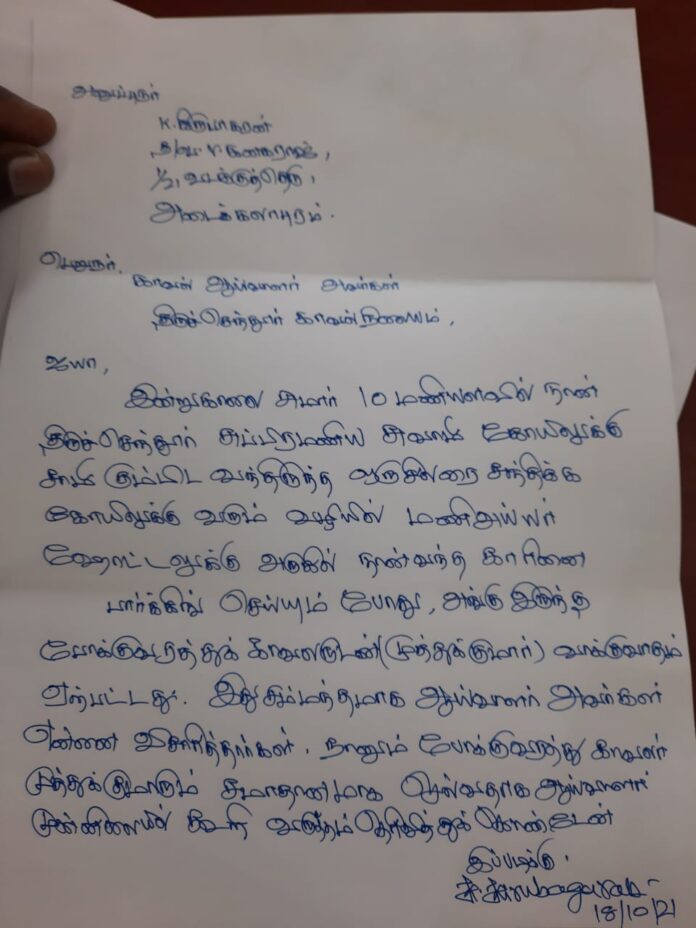 அனுப்புநர்
K. கிருபாகரன்
த/பெ. V. கனகராஜ்,
1/2, வடக்குத்தெரு,
அடைக்கலாபுரம்.
பெறுநர்.
காவல் ஆய்வாளர் அவர்கள்
திருச்செந்தூர் காவல் நிலையம்,
ஐயா,
இன்று காலை சுமார் 10 மணியளவில் நான்
திருச்செந்தூர் சுப்பிரமணிய சுவாமி கோயிலுக்கு
சாமி கும்பிட வந்திருந்த ஒருசிலரை சந்திக்க
கோயிலுக்கு வரும் வழியில் மணிஅய்யர்
ஹோட்டலுக்கு அருகில் நான் வந்த காரினை
பார்க்கிங் செய்யும் போது, அங்கு இருந்த
போக்குவரத்துக் காவலருடன் (முத்துக்குமார்) வாக்குவாதம்
ஏற்பட்டது. இது சம்மந்தமாக ஆய்வாளர் அவர்கள்
என்னை விசாரித்தார்கள். நானும் போக்குவரத்து காவலர்
முத்துக்குமாரும் சமாதானமாக செல்வதாக ஆய்வாளர்
முன்னிலையில் கூறி வருத்தம் தெரிவித்துக் கொண்டேன்
இப்படிக்கு.
K. Kirubagaran
18/10/21